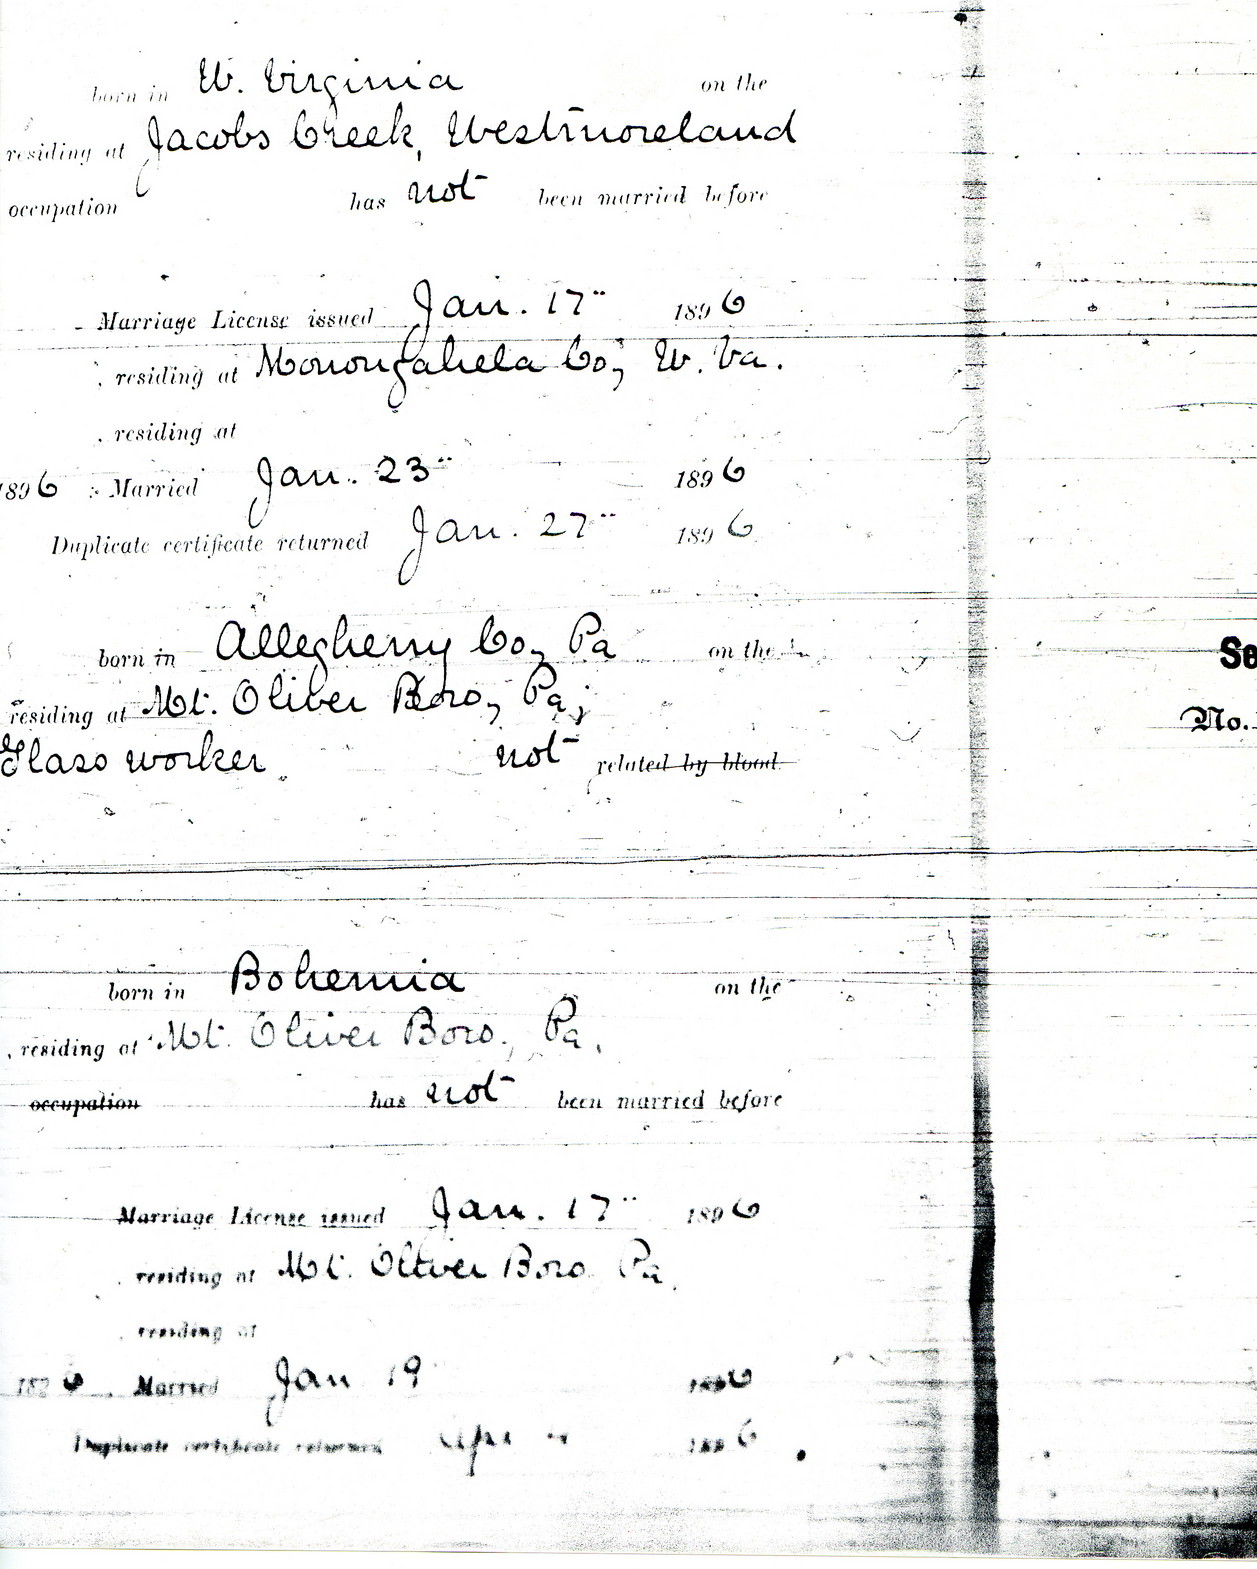 born in W. Virginia on the
residing at Jacobs Creek, Westmoreland
occupation has not been married before
Marriage License issued Jan. 17" 1896
, residing at Monongahela Co; W. Va.
, residing at
1896 : Married Jan. 23" 1896
Duplicate certificate returned Jan. 27" 1896
born in Allegheny Co, Pa on the
Se
residing at Mt. Oliver Boro, Pa;
No.
Glass worker not related by blood.
born in Bohemia on the
, residing at Mt. Oliver Boro., Pa.
occupation has not been married before
Marriage License issued Jan. 17" 1896
, residing at Mt. Oliver Boro Pa.
, residing at
1896 . Married Jan 19 1896
Duplicate certificate returned 1896